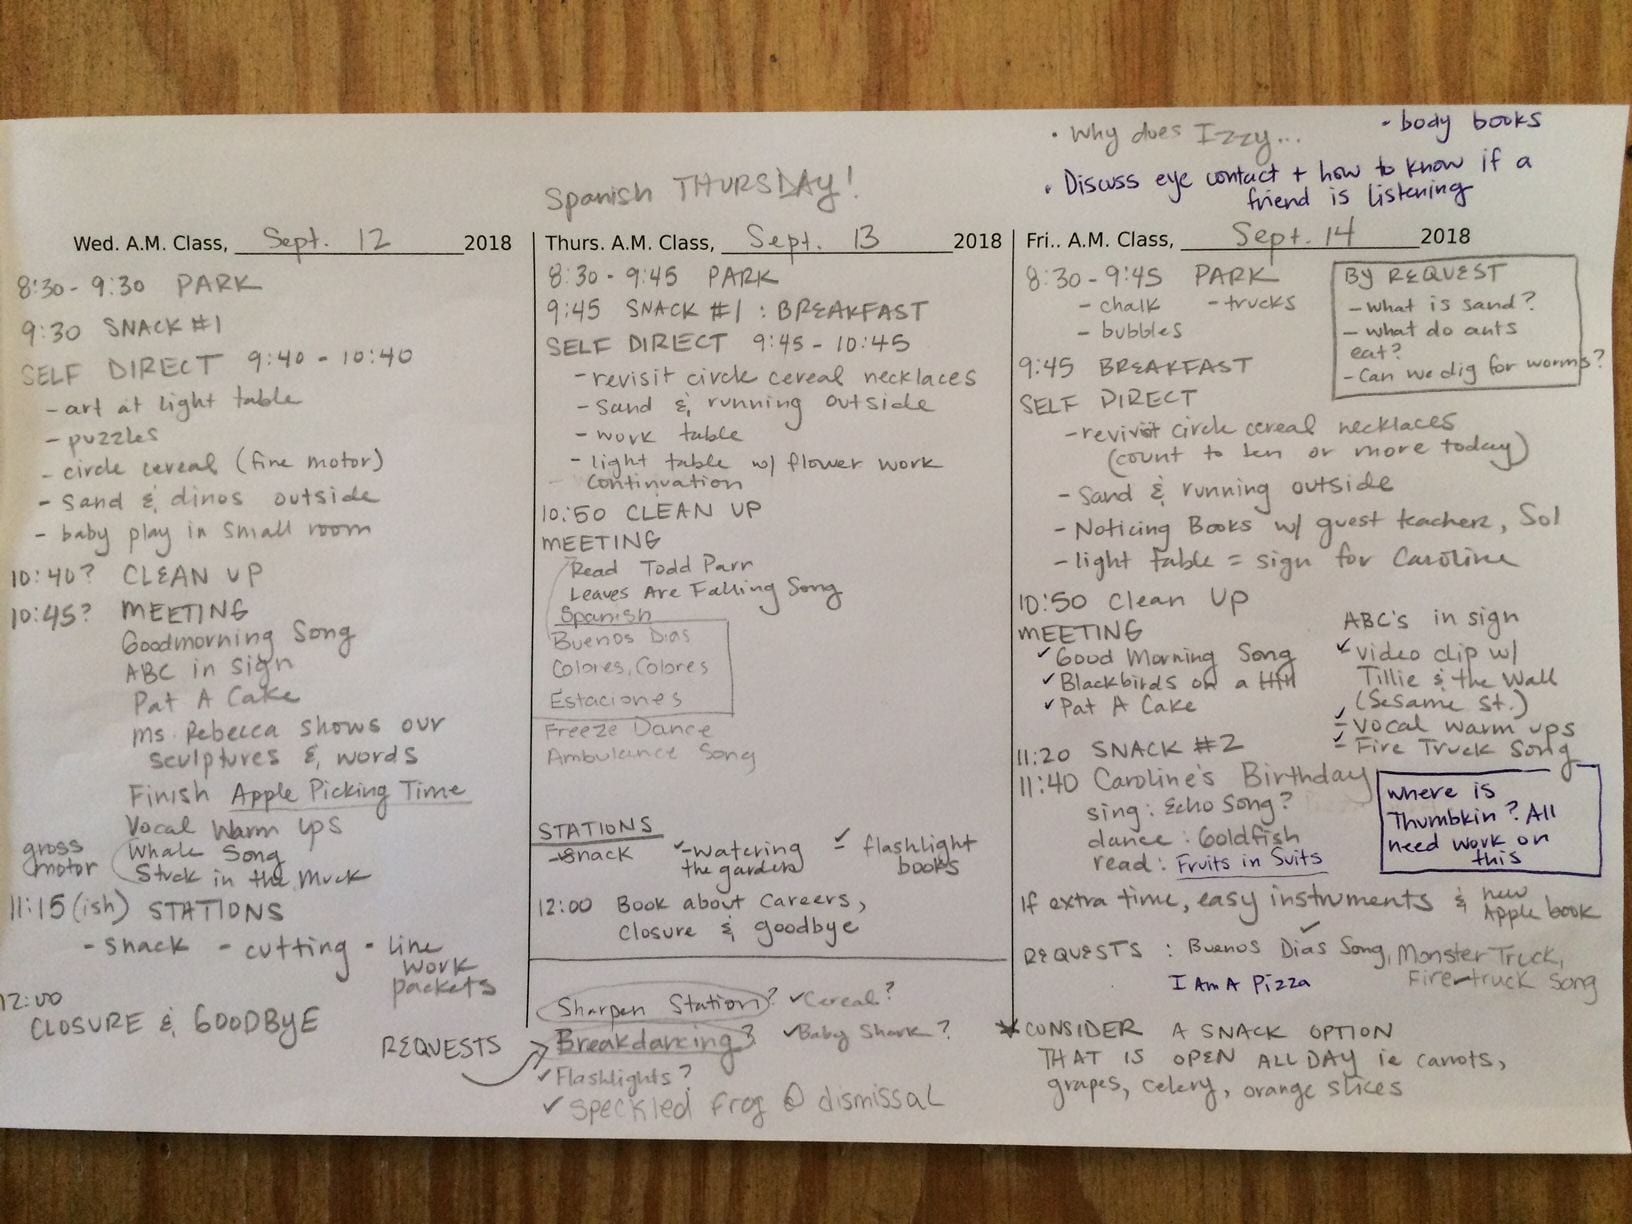 • Why does Izzy...
• body books
• Discuss eye contact + how to know if a
friend is listening
Spanish THURSDAY!
Wed. A.M. Class, Sept. 12 2018
8:30 - 9:30 PARK
9:30 SNACK #1
SELF DIRECT 9:40 - 10:40
- art at light table
- puzzles
- circle cereal (fine motor)
- Sand & dinos outside
- baby play in small room
10:40? CLEAN UP
10:45? MEETING
Goodmorning Song
ABC in sign
Pat A Cake
Ms. Rebecca shows our
sculptures & words
Finish Apple Picking Time
Vocal Warm Ups
gross
motor
Whale Song
Stuck in the Muck
11:15 (ish) STATIONS
- snack - cutting - line
work
packets
12:00
CLOSURE & GOODBYE
REQUESTS
Thurs. A.M. Class, Sept. 13 2018
8:30 - 9:45 PARK
9:45 SNACK #1 : BREAKFAST
SELF DIRECT 9:45 - 10:45
- revisit circle cereal necklaces
- Sand & running outside
- work table
- light table w/ flower work
continuation
10:50 CLEAN UP
MEETING
Read Todd Parr
Leaves Are Falling Song
Spanish
Buenos Dias
Colores, Colores
Estaciones
Freeze Dance
Ambulance Song
STATIONS
- snack ✓ - watering
the garden
✓ - flashlight
books
12:00 Book about Careers,
Closure & goodbye
Sharpen Station? ✓ Cereal?
Breakdancing? ✓ Baby Shark?
✓ Flashlights?
✓ speckled frog @ dismissal
Fri.. A.M. Class, Sept. 14 2018
8:30 - 9:45 PARK
- chalk - trucks
- bubbles
BY REQUEST
- What is sand?
- What do ants
eat?
- Can we dig for worms?
9:45 BREAKFAST
SELF DIRECT
- revisit circle cereal necklaces
(count to ten or more today)
- Sand & running outside
- Noticing Books w/ guest teacher, Sol
- light table = sign for Caroline
10:50 Clean Up
MEETING
✓ Good Morning Song
✓ Blackbirds on a Hill
✓ Pat A Cake
ABC's in sign
✓ video clip w/
Tillie & the Wall
(Sesame St.)
✓ - Vocal warm ups
✓ - Fire Truck Song
11:20 SNACK #2
11:40 Caroline's Birthday
sing: Echo Song?
dance: Goldfish
read: Fruits in Suits
where is
Thumbkin? All
need work on
this
If extra time, easy instruments & new
Apple book
REQUESTS : Buenos Dias Song, ✓ Monster Truck,
I Am A Pizza Fire-truck Song
* CONSIDER A SNACK OPTION
THAT IS OPEN ALL DAY ie carrots,
grapes, celery, orange slices